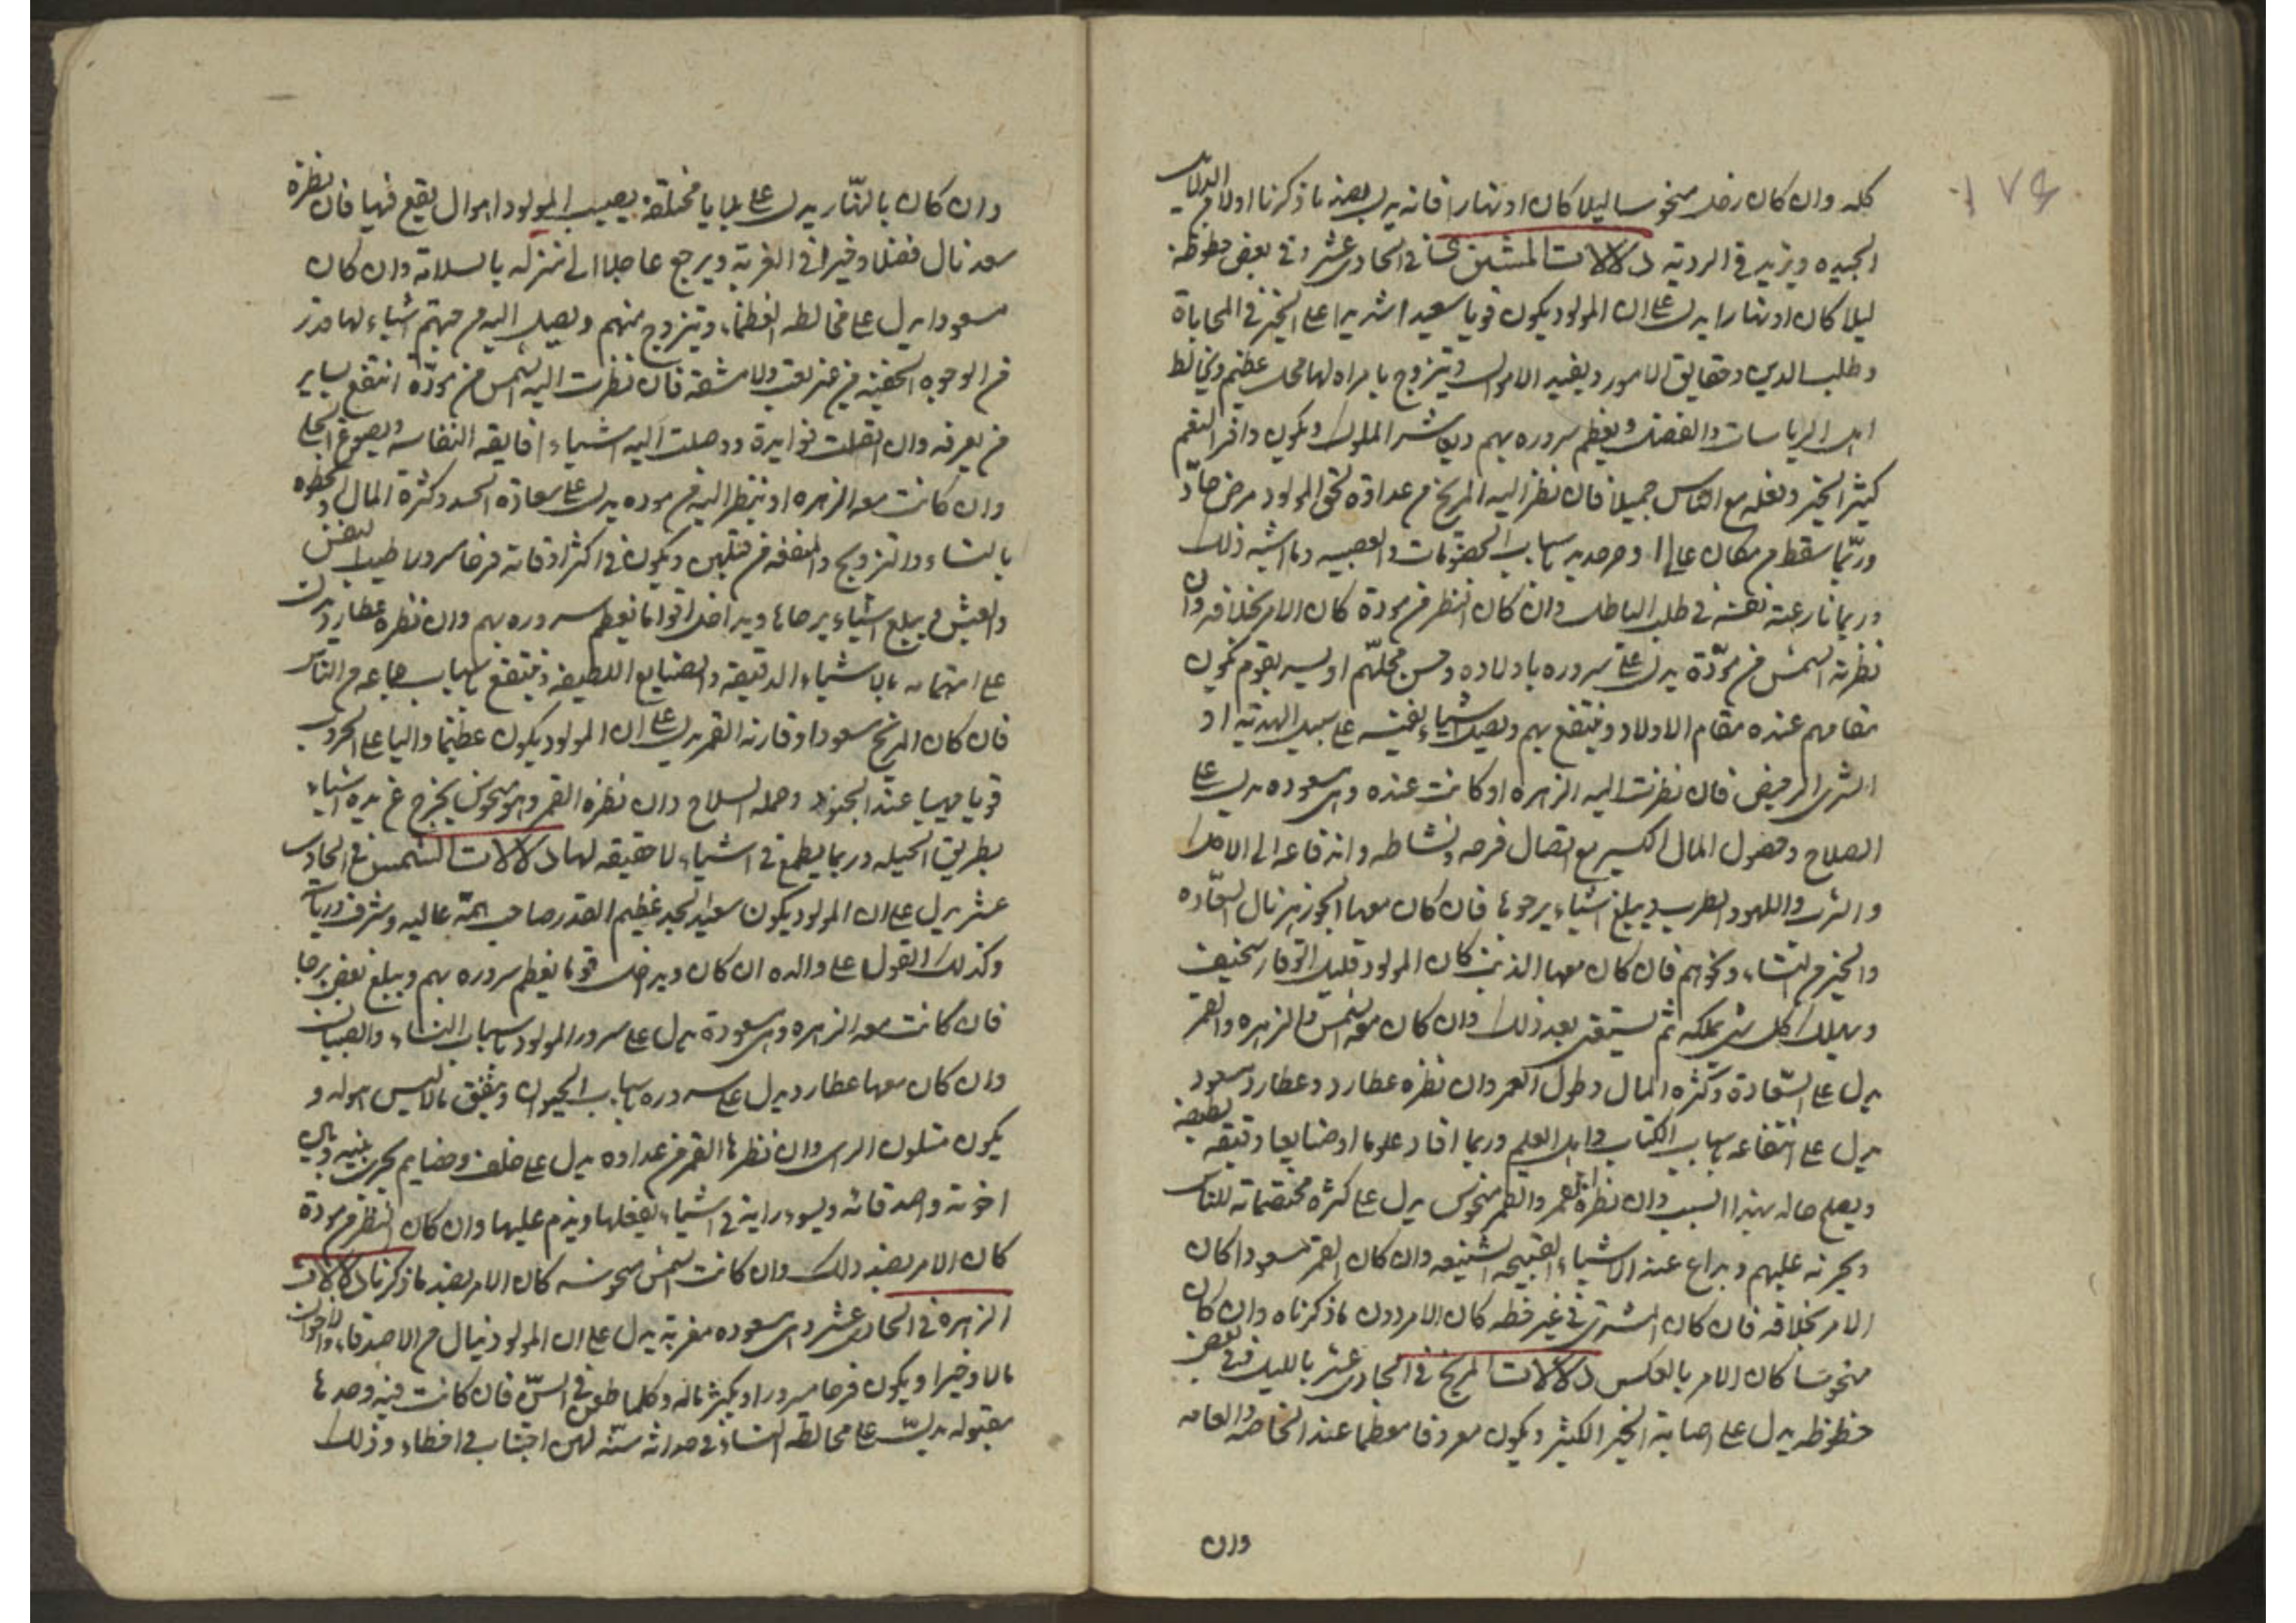 كله وان كان زحل منحوسا ليلا كان او نهارا فانه يدل بضد ما ذكرنا اولا من الدلالات
الجيده ويزيد في الرديه دلالات المشترى في الحادى عشر وفى بعض حظوظه
ليلا كان او نهارا يدل على ان المولود يكون قويا سعيدا على الخير في المحاباة
وطلب الدين وحقايق الامور ويفيد الاموال ويتزوج بامراه لها محل عظيم ويخالط
اهل الرياسات والفضل ويعظم سروره بهم ويعاشر الملوك ويكون وافر النعم
كثير الخير وفعله مع الناس جميلا فان نظر اليه المريخ من عداوة لحق المولود مرض حادّ
وربّما سقط من مكان عال باسباب الخصومات والعصبيه وما اشبه ذلك
وربما نازعته نفسه في طلب الباطل وان كان النظر من مودة كان الامر بخلافه وان
نظرته الشمس من مودّة يدل على سروره باولاده وحسن محلّهم او يسر بقوم يكون
مقامهم عنده مقام الاولاد وينتفع بهم ويصل اشياء نفيسه على سبيل الهديه او
الشرى الرخيص فان نظرت اليه الزهره او كانت عنده وهى مسعوده يدل على
الصلاح وحصول المال الكثير مع اتصال فرحه ونشاطه
والشرب واللهو والطرب ويبلغ اشياء يرجوها فان كان معها الجوزهر نال السعّاده
والخير من النساء ونحوهم فان كان معها الذنب كان المولود قليل الوقار سخيف
ويهلك كل شى يملكه ثم بعد ذلك وان كان معه الشمس والزهره والقمر
يدل على السّعادة وكثره المال وطول العمر وان نظره عطارد وعطارد مسعود
يدل على انتفاعه باسباب الكتاب واهل العلم وربما افاد علوما او صنايعا دقيقه لطيفه
ويصلح حاله بهذا السبب وان نظره القمر والقمر منحوس يدل على كثره مخاصماته للناس
عليهم عند الاشياء القبيحه الشنيعه وان كان القمر مسعودا كان
الامر بخلافه فان كان المشترى في غير حظه كان الامر دون ما ذكرناه وان كان
منحوسا كان الامر بالعكس دلالات المريخ في الحادى عشر بالليل في بعض
حظوظه يدل على اصابة الخير الكثير ويكون معروفا معظما عند الخاصه والعامه
وان
وان كان بالنّهار يدل على بلايا مختلفه يصيب المولود اهوال يقع فيها فان نظره
سعد نال فضلا وخيرا في الغربة ويرجع عاجلا الى منزله بالسلامة وان كان
مسعودا يدل على مخالطه العظماء ويتزوج منهم ويصل اليه من جهتهم اشياء لها قدر
من الوجوه الخفيه من غير تعب ولا مشقه فان نظرت اليه الشمس من مودّة انتفع بساير
من يعرفه وان اتصلت به الزهرة ووصلت اليه اشياء فايقه النفاسه ويصوغ الحلى
وان كانت معه الزهره او ينظر اليه من موده يدل على سعادة الجسد وكثرة المال والحظوه
بالنساء والتزويج والمنفعه من قبلهن ويكون في اكثر اوقاته فرحا مسرورا طيب النفس
والعيش و يبلغ اشياء يرجاها ويداخل اقواما يعظم سروره بهم وان نظره عطارد يدل
على اهتمامه بالاشياء الدقيقه والصنايع اللطيفه وينتفع باسباب جماعه من الناس
فان كان المريخ مسعودا وقارنه القمر يدل على ان المولود يكون عظيما واليا على الحروب
قويا مهيبا عند الجنود وحمله السلاح وان نظره القمر وهو منحوس يخرج عن يده اشياء
بطريق الحيله وربما يطمع في اشياء لا حقيقه لها دلالات الشمس في الحادى
عشر يدل على ان المولود يكون سعيد الجد عظيم القدر صاحب همّه عاليه وشرف ورياسه
وكذلك القول على والده ان كان ويداخل قوما يعظم سروره بهم ويبلغ بعض يرجا
فان كانت معه الزهره وهى مسعودة يدل على سرور المولود باسباب النساء والصبيان
وان كان معها عطارد يدل على سروره باسباب الحيوان وينفق ما ليس هو له و
يكون متلون الراى وان نظرها القمر من عداوه يدل على خلف وخصايم يجرى بينه وبين
اخوته واصدقائه ويسوء رايه في اشياء يفعلها ويندم عليها وان كان النظر من مودة
كان الامر بضد ذلك وان كانت الشمس منحوسه كان الامر بضد ما ذكرنا دلالات
الزهرة في الحادى عشر وهى مسعوده مغربه يدل على ان المولود ينال من الاصدقاء والاخوان
مالا وخيرا ويكون فرحا مسرورا ويكثر ماله وكلما طعن في السنّ فان كانت فيه وحدها
مقبوله يدلّ على مخالطه النساء في حداثه سنّه لهن وذلك